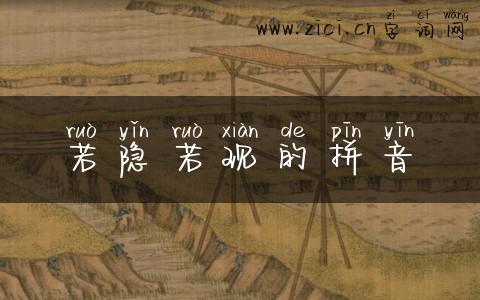 zì cí wǎng
www.zici.cn字词网
ruò yǐn ruò xiàn de pīn yīn
若隐若现的拼音